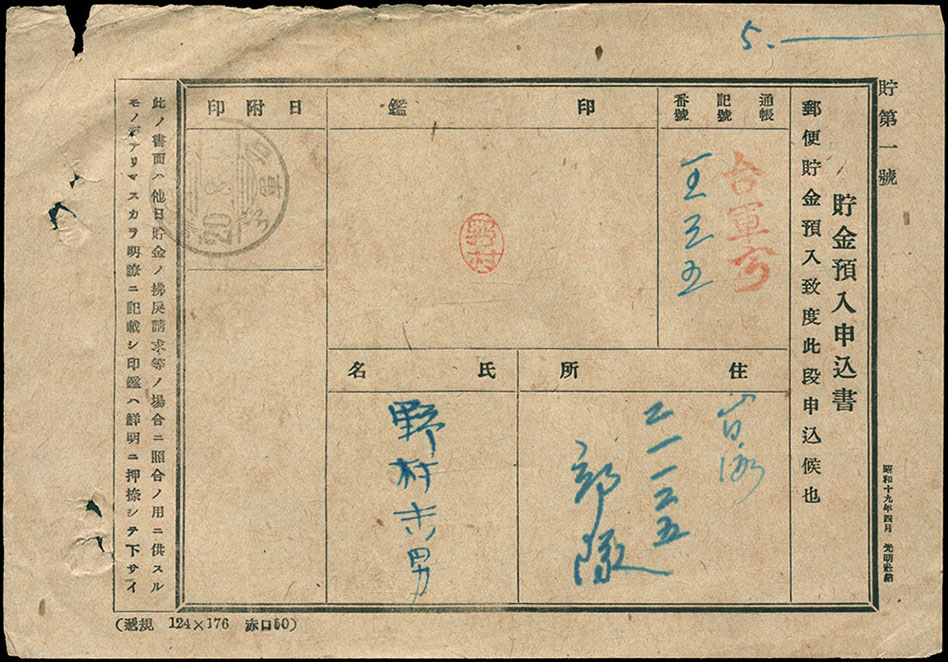 5.
貯第一號
貯金預入申込書
郵便貯金預入致度此段申込候也
昭和十九年四月 光明社納
通帳
記號
番號
台軍
印鑑
野村
日附印
20
住所
二一一三五
部隊
氏名
野村
男
此ノ書面ハ他日貯金ノ拂戾請求等ノ場合ニ照合ノ用ニ供スル
モノデアリマスカラ明瞭ニ記載シ印鑑ハ鮮明ニ押捺シテ下サイ
(遞規 124×176 赤口50)